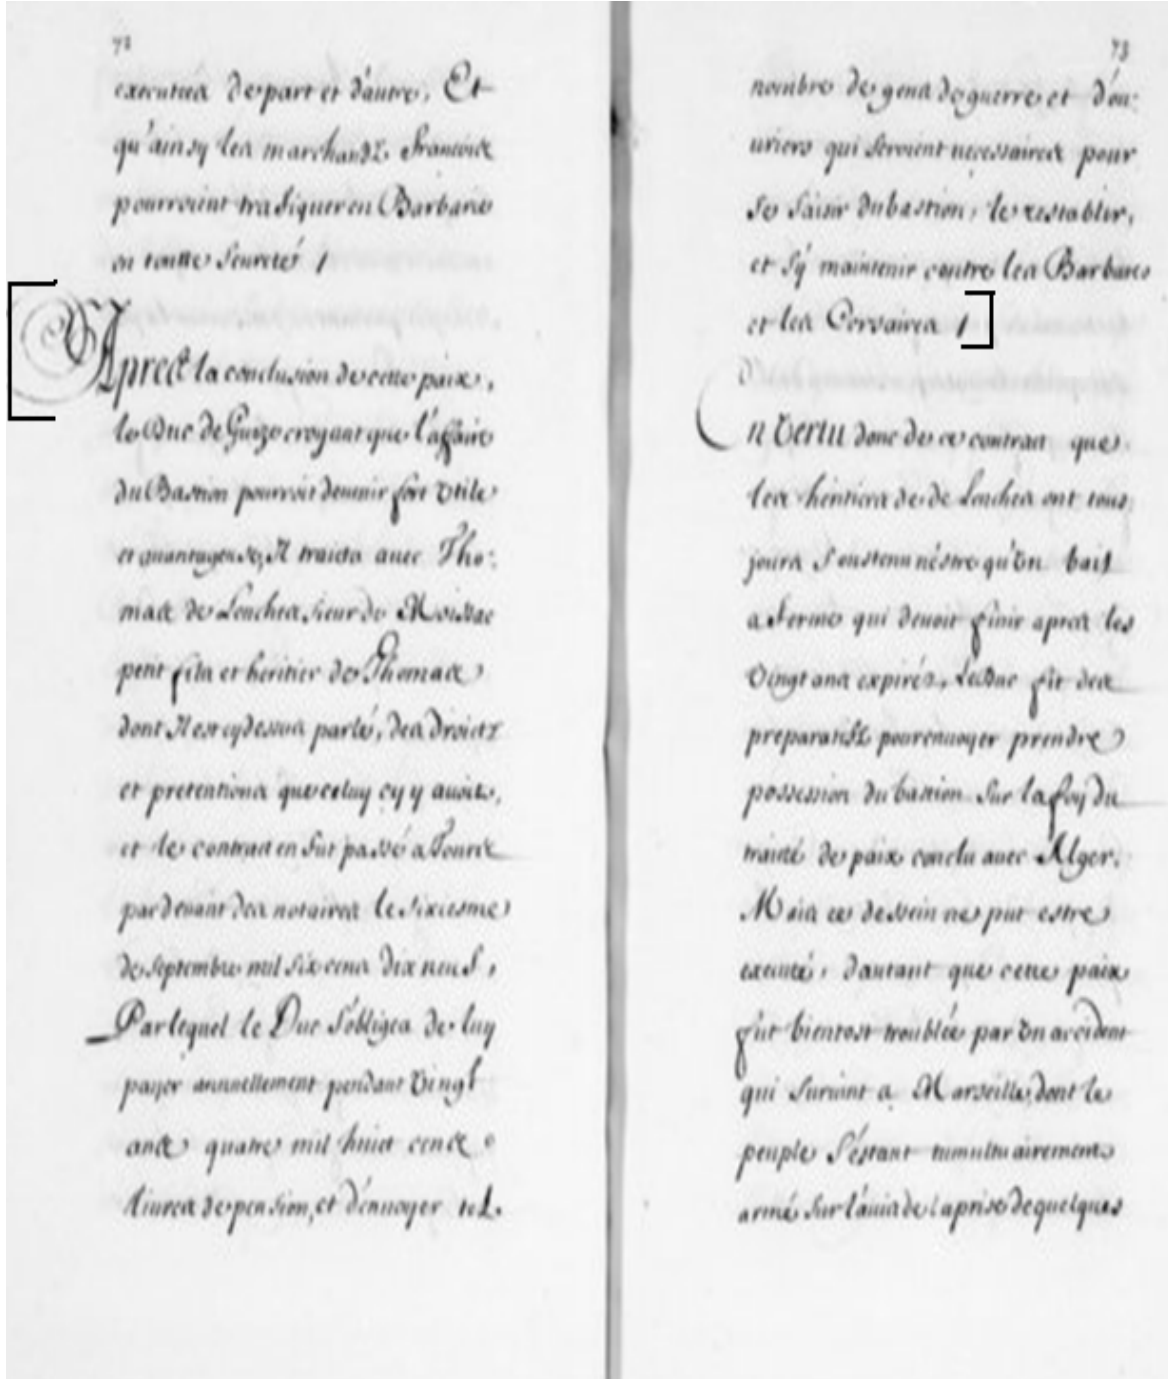 72
executées de part et d'autre, Et
qu'ainsy les marchandz François
pourroient trafiquer en Barbarie
en toutte seureté /
Après la conclusion de cette paix,
le Duc de Guize croyant que l'affaire
du Bastion pourroit deuenir fort vtile
et auantageuse, Il traicta auec Tho:
mas de Lenches, sieur de Moissac
petit filz et heritier de Thomas
dont Il est cy dessus parlé, des droictz
et pretentions que celuy cy y auoit,
et le contract en fut passé a Tours
pardeuant des notaires le sixiesme
de septembre mil six cens dix neuf,
Par lequel le Duc s'obligea de luy
payer annuellement pendant vingt
ans quatre mil huict cens
liures de pension, et d'enuoyer tel
73
nombre de gens de guerre et d'ou:
uriers qui seroient necessaires pour
se saisir du bastion, le restablir,
et s'y maintenir contre les Barbares
et les Corsaires /
En vertu donc de ce contract que
les heritiers de de Lenches ont tous
jours soustenu n'estre qu'vn bail
a ferme qui deuoit finir apres les
vingt ans expirés, Le Duc fit des
preparatifz pour enuoyer prendre
possession du bastion sur la foy du
traité de paix conclu auec Alger.
Mais ce dessein ne put estre
executé, d'autant que cette paix
fut bientost troublée par vn accident
qui suruint a Marseille, dont le
peuple s'estant tumultuairement
armé sur l'auis de la prise de quelques